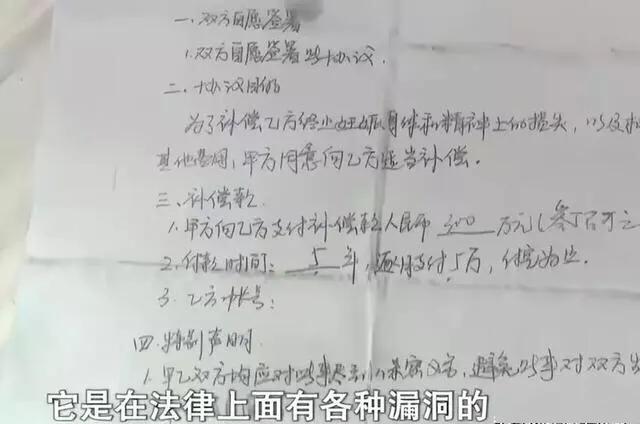 一、双方自愿签署
1.双方自愿签署此协议.
二、协议目的
为了补偿乙方终止妊娠身体和精神上的损失,以及
其他费用,甲方同意向乙方适当补偿。
三、补偿款
1.甲方向乙方支付补偿款人民币 300 万元(叁
2.付款时间: 5 年,逐月支付5万,付完为止.
3.乙方帐号:
四.特别声明
1.甲乙双方均应对此事尽到保密义务,避免此事对双方
它是在法律上面有各种漏洞的